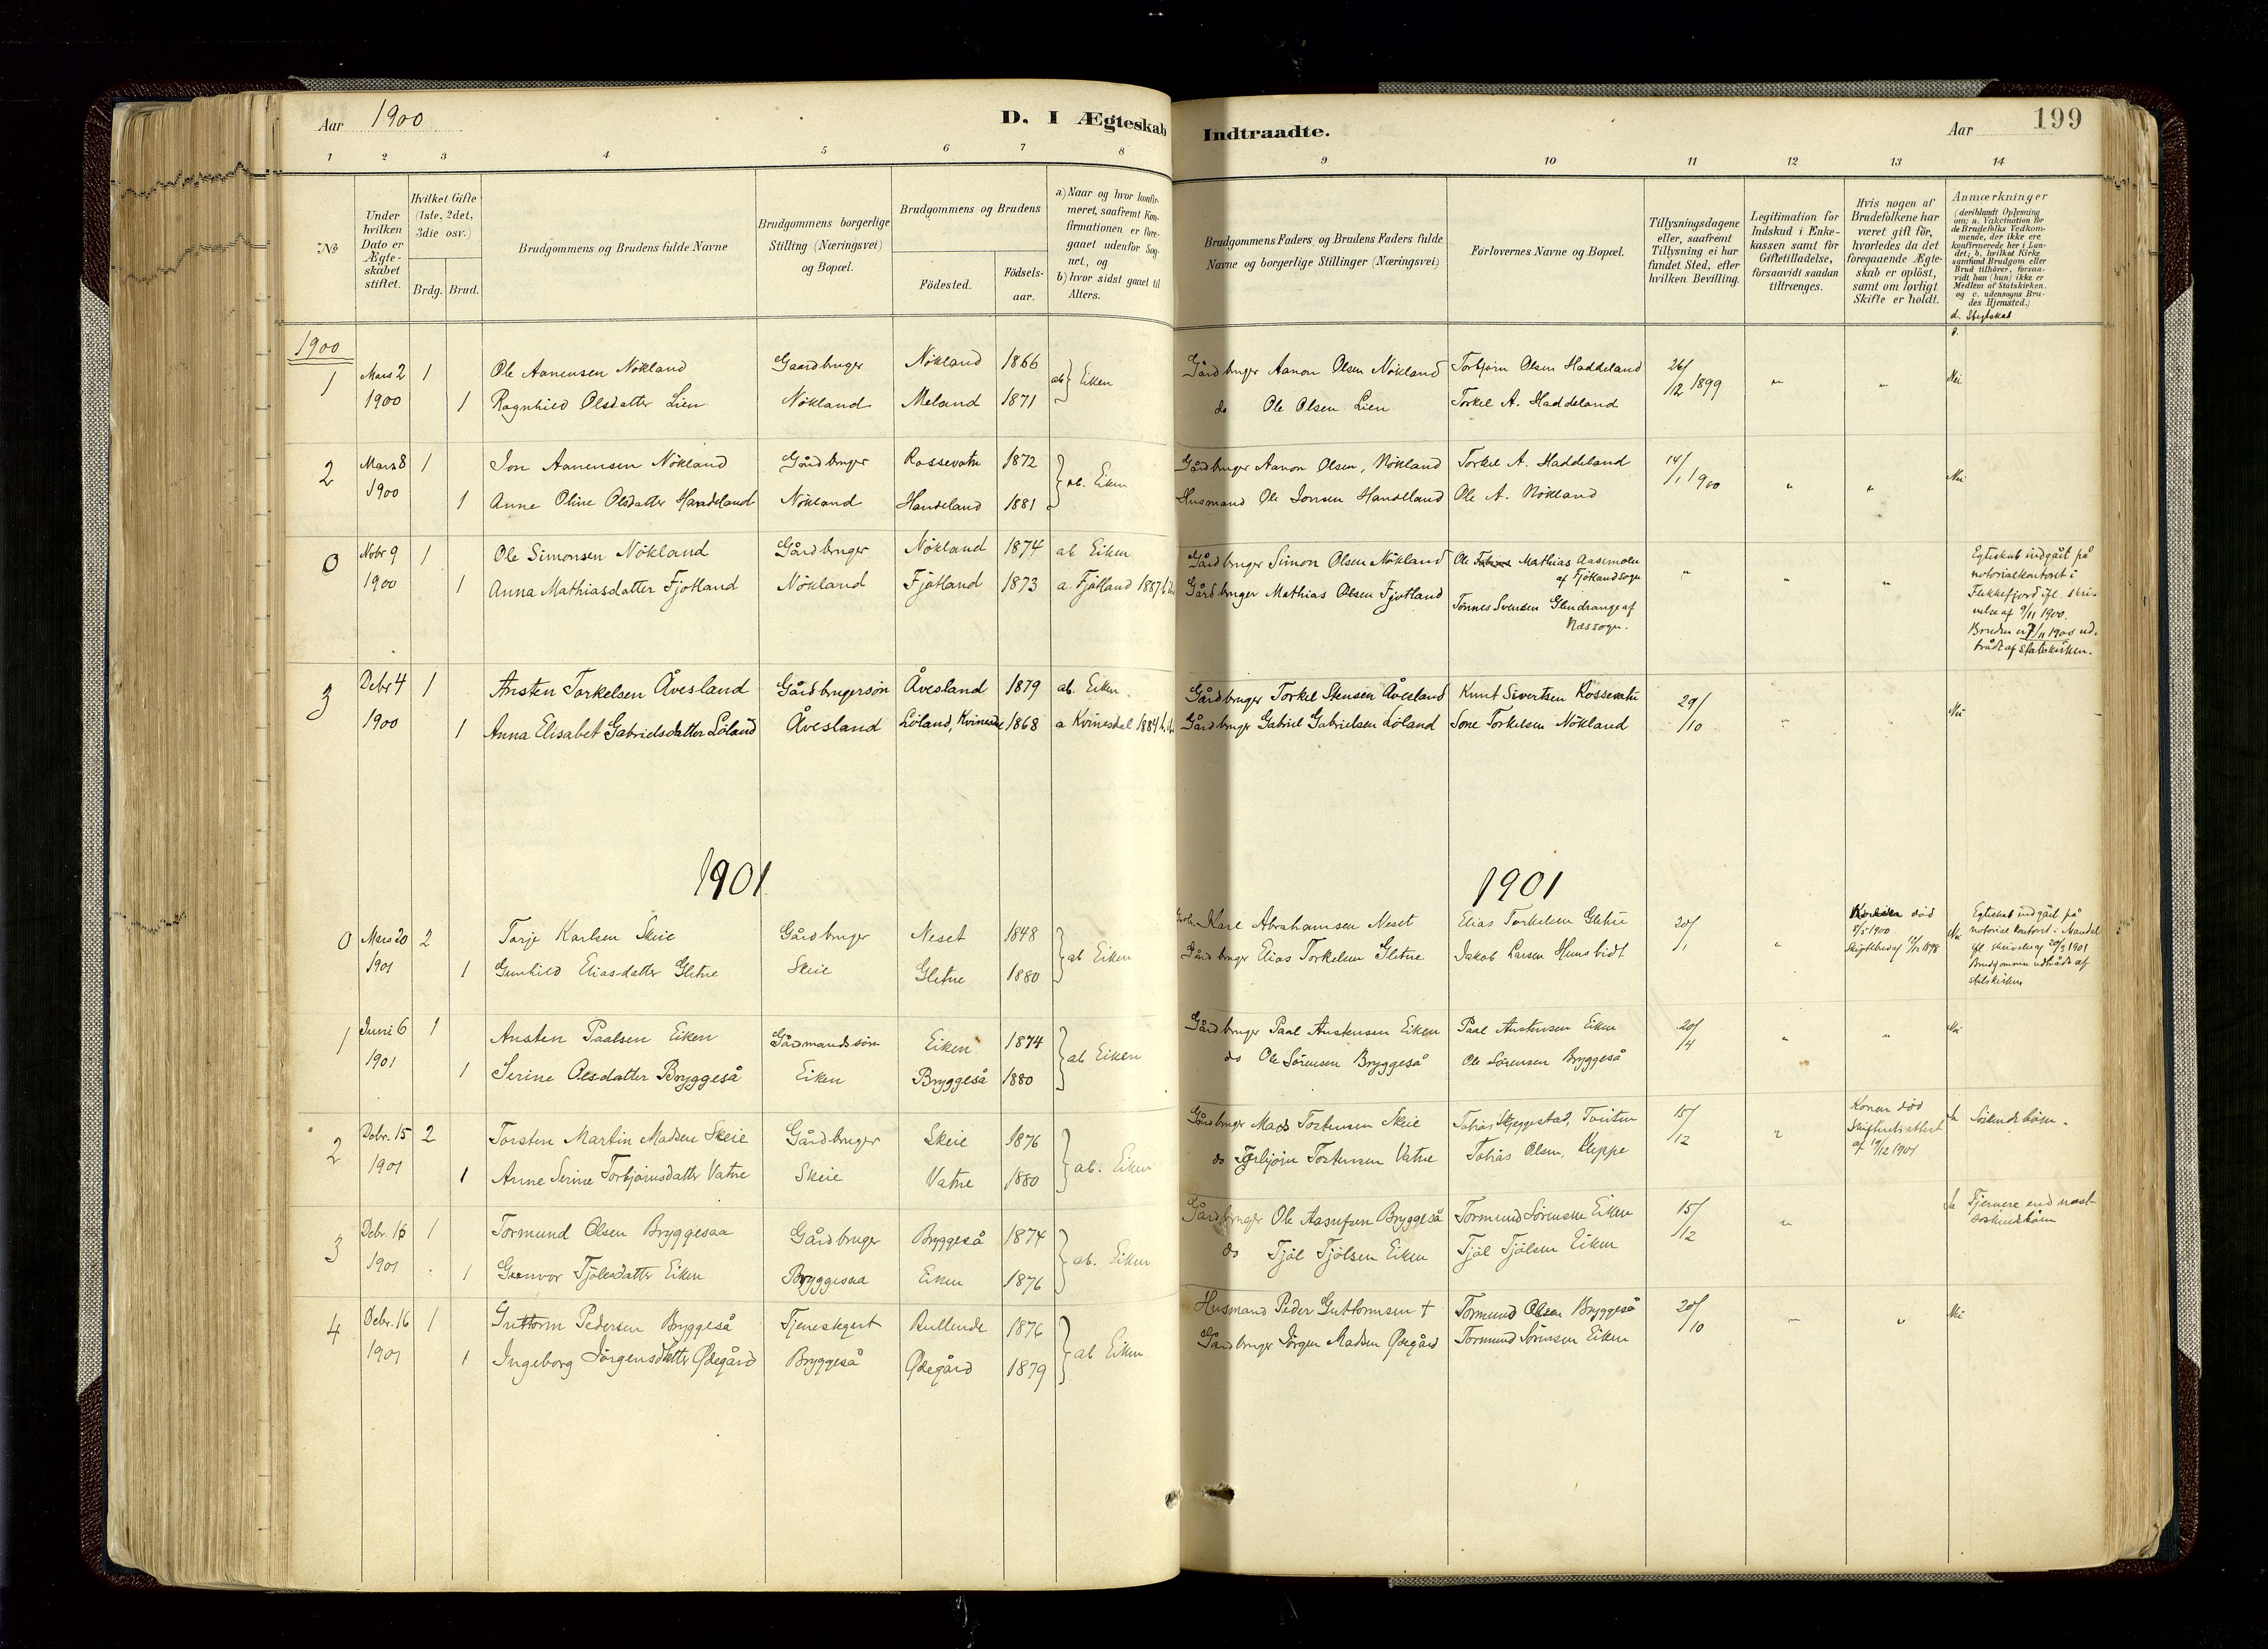 Aar 1900
D. I Ægteskab Indtraadte.
Aar
199
1 2 3 4 5 6 7 8 9 10 11 12 13 14
No
Under hvilken Dato er Ægteskabet stiftet.
Hvilket Gifte (1ste, 2det, 3die osv.)
Brdg. Brud.
Brudgommens og Brudens fulde Navne
Brudgommens borgerlige Stilling (Næringsvei) og Bopæl.
Brudgommens og Brudens
Födested.
Födsels-aar.
a) Naar og hvor konfirmeret, saafremt Konfirmationen er foregaaet udenfor Sognet, og
b) hvor sidst gaaet til Alters.
Brudgommens Faders og Brudens Faders fulde Navne og borgerlige Stillinger (Næringsvei)
Forlovernes Navne og Bopæl.
Tillysningsdagene eller, saafremt Tillysning ei har fundet Sted, efter hvilken Bevilling.
Legitimation for Indskud i Enkekassen samt for Giftetilladelse, forsaavidt saadan tiltrænges.
Hvis nogen af Brudefolkene har været gift för, hvorledes da det foregaaende Ægteskab er oplöst, samt om lovligt Skifte er holdt.
Anmærkninger
(deriblandt Oplysning om: a. Vakcination for de Brudefolks Vedkommende, der ikke ere konfirmerede her i Landet; b. hvilket Kirkesamfund Brudgom eller Brud tilhörer, forsaavidt han (hun) ikke er Medlem af Statskirken, og c. udensogns Brudes Hjemsted.)
d. Slegtskab
1900
1 Mars 2 1 Ole Aanensen Nökland Gaardbruger Nökland 1866 ab} Eiken Gårdbruger Aanon Olsen Nökland Torbjörn Olsen Haddeland 26/12 1899 " " Nei
1900 1 Ragnhild Olsdatter Lien Nökland Meland 1871 do Ole Olsen Lien Torkel A. Haddeland
2 Mars 8 1 Jon Aanensen Nökland Gårdbruger Rossevatn 1872 } ab. Eiken Gårdbruger Aanon Olsen, Nökland Torkel A. Haddeland 14/1 1900 " " Nei
1900 1 Anne Oline Olsdatter Handeland Nökland Handeland 1881 Husmand Ole Jonsen Handeland Ole A. Nökland
0 Nobr 9 1 Ole Simonsen Nökland Gårdbruger Nökland 1874 ab Eiken Gårdbruger Simon Olsen Nökland Ole Mathias Aasemoen af Fjotlandsogn " " "
1900 1 Anna Mathiasdatter Fjotland Nökland Fjotland 1873 a. Fjotland 1887 Gårdbruger Mathias Olsen Fjotland Tönnes Svensen Glendrange af Næs sogn.
Egteskab indgåt på
notorialkontoret i
Flekkefjord ifl. skri-
velse af 9/11 1900.
Bruden 7/11 1900 ud-
trådt af statskirken.
3 Debr 4 1 Ansten Torkelsen Åvesland Gårdbrugersön Åvesland 1879 ab. Eiken Gårdbruger Torkel Stensen Åvesland Knut Sivertsen Rossevatn 29/10 " " Nei
1900 1 Anna Elisabet Gabrielsdatter Löland Åvesland Löland, Kvinesdal 1868 a Kvinesdal 1884 Gårdbruger Gabriel Gabrielsen Löland Sone Torkelsen Nökland
1901
1901
0 Mars 20 2 Tarje Karlsen Skeie Gårdbruger Neset 1848 } ab Eiken Karl Abrahamsen Neset Elias Torkelsen Gletne 20/1 " Nei
1901 1 Gunhild Eliasdatter Gletne Skeie Gletne 1880 Gårdbruger Elias Torkelsen Gletne Jakob Larsen Hunsbidt
död
/5 1900
Egteskab indgåt på
notorial kontoret i Mandal
ifl. skrivelse af 20/3 1901
Brudgommen udtrådt af
statskirken
1 Juni 6 1 Ansten Paalsen Eiken Gårdmandssön Eiken 1874 } ab Eiken Gårdbruger Paal Anstensen Eiken Paal Anstensen Eiken 20/4 " " Nei
1901 1 Serine Olsdatter Bryggeså Eiken Bryggeså 1880 do Ole Sörensen Bryggeså Ole Sörensen Bryggeså
2 Debr. 15 2 Torsten Martin Madsen Skeie Gårdbruger Skeie 1876 } ab. Eiken Gårdbruger Mads Tostensen Skeie Tobias Skjeggestad, 15/12 " Ja Söskendebörn.
1901 1 Anne Serine Torbjörnsdatter Vatne Skeie Vatne 1880 do Torbjörn Tostensen Vatne Tobias Olsen, Kleppe
Konen död
Skifteretsattest
af /12 1901
3 Debr. 16 1 Tormund Olsen Bryggesaa Gårdbruger Bryggeså 1874 } ab. Eiken Gårdbruger Ole Aasulsen Bryggeså Tormund Sörensen Eiken 15/12 " Ja Fjernere end næst-
söskendebörn
1901 1 Gunvor Tjölsdatter Eiken Bryggesaa Eiken 1876 do Tjöl Tjölsen Eiken Tjöl Tjölsen Eiken
4 Debr. 16 1 Guttorm Pedersen Bryggeså Tjenestegut Bullende 1876 } ab Eiken Husmand Peder Guttormsen † Tormund Olsen Bryggeså 20/10 " " Nei
1901 1 Ingeborg Jörgensdatter Ødegård Bryggeså Ødegård 1879 Gårdbruger Jörgen Madsen Ødegård Tormund Sörensen Eiken